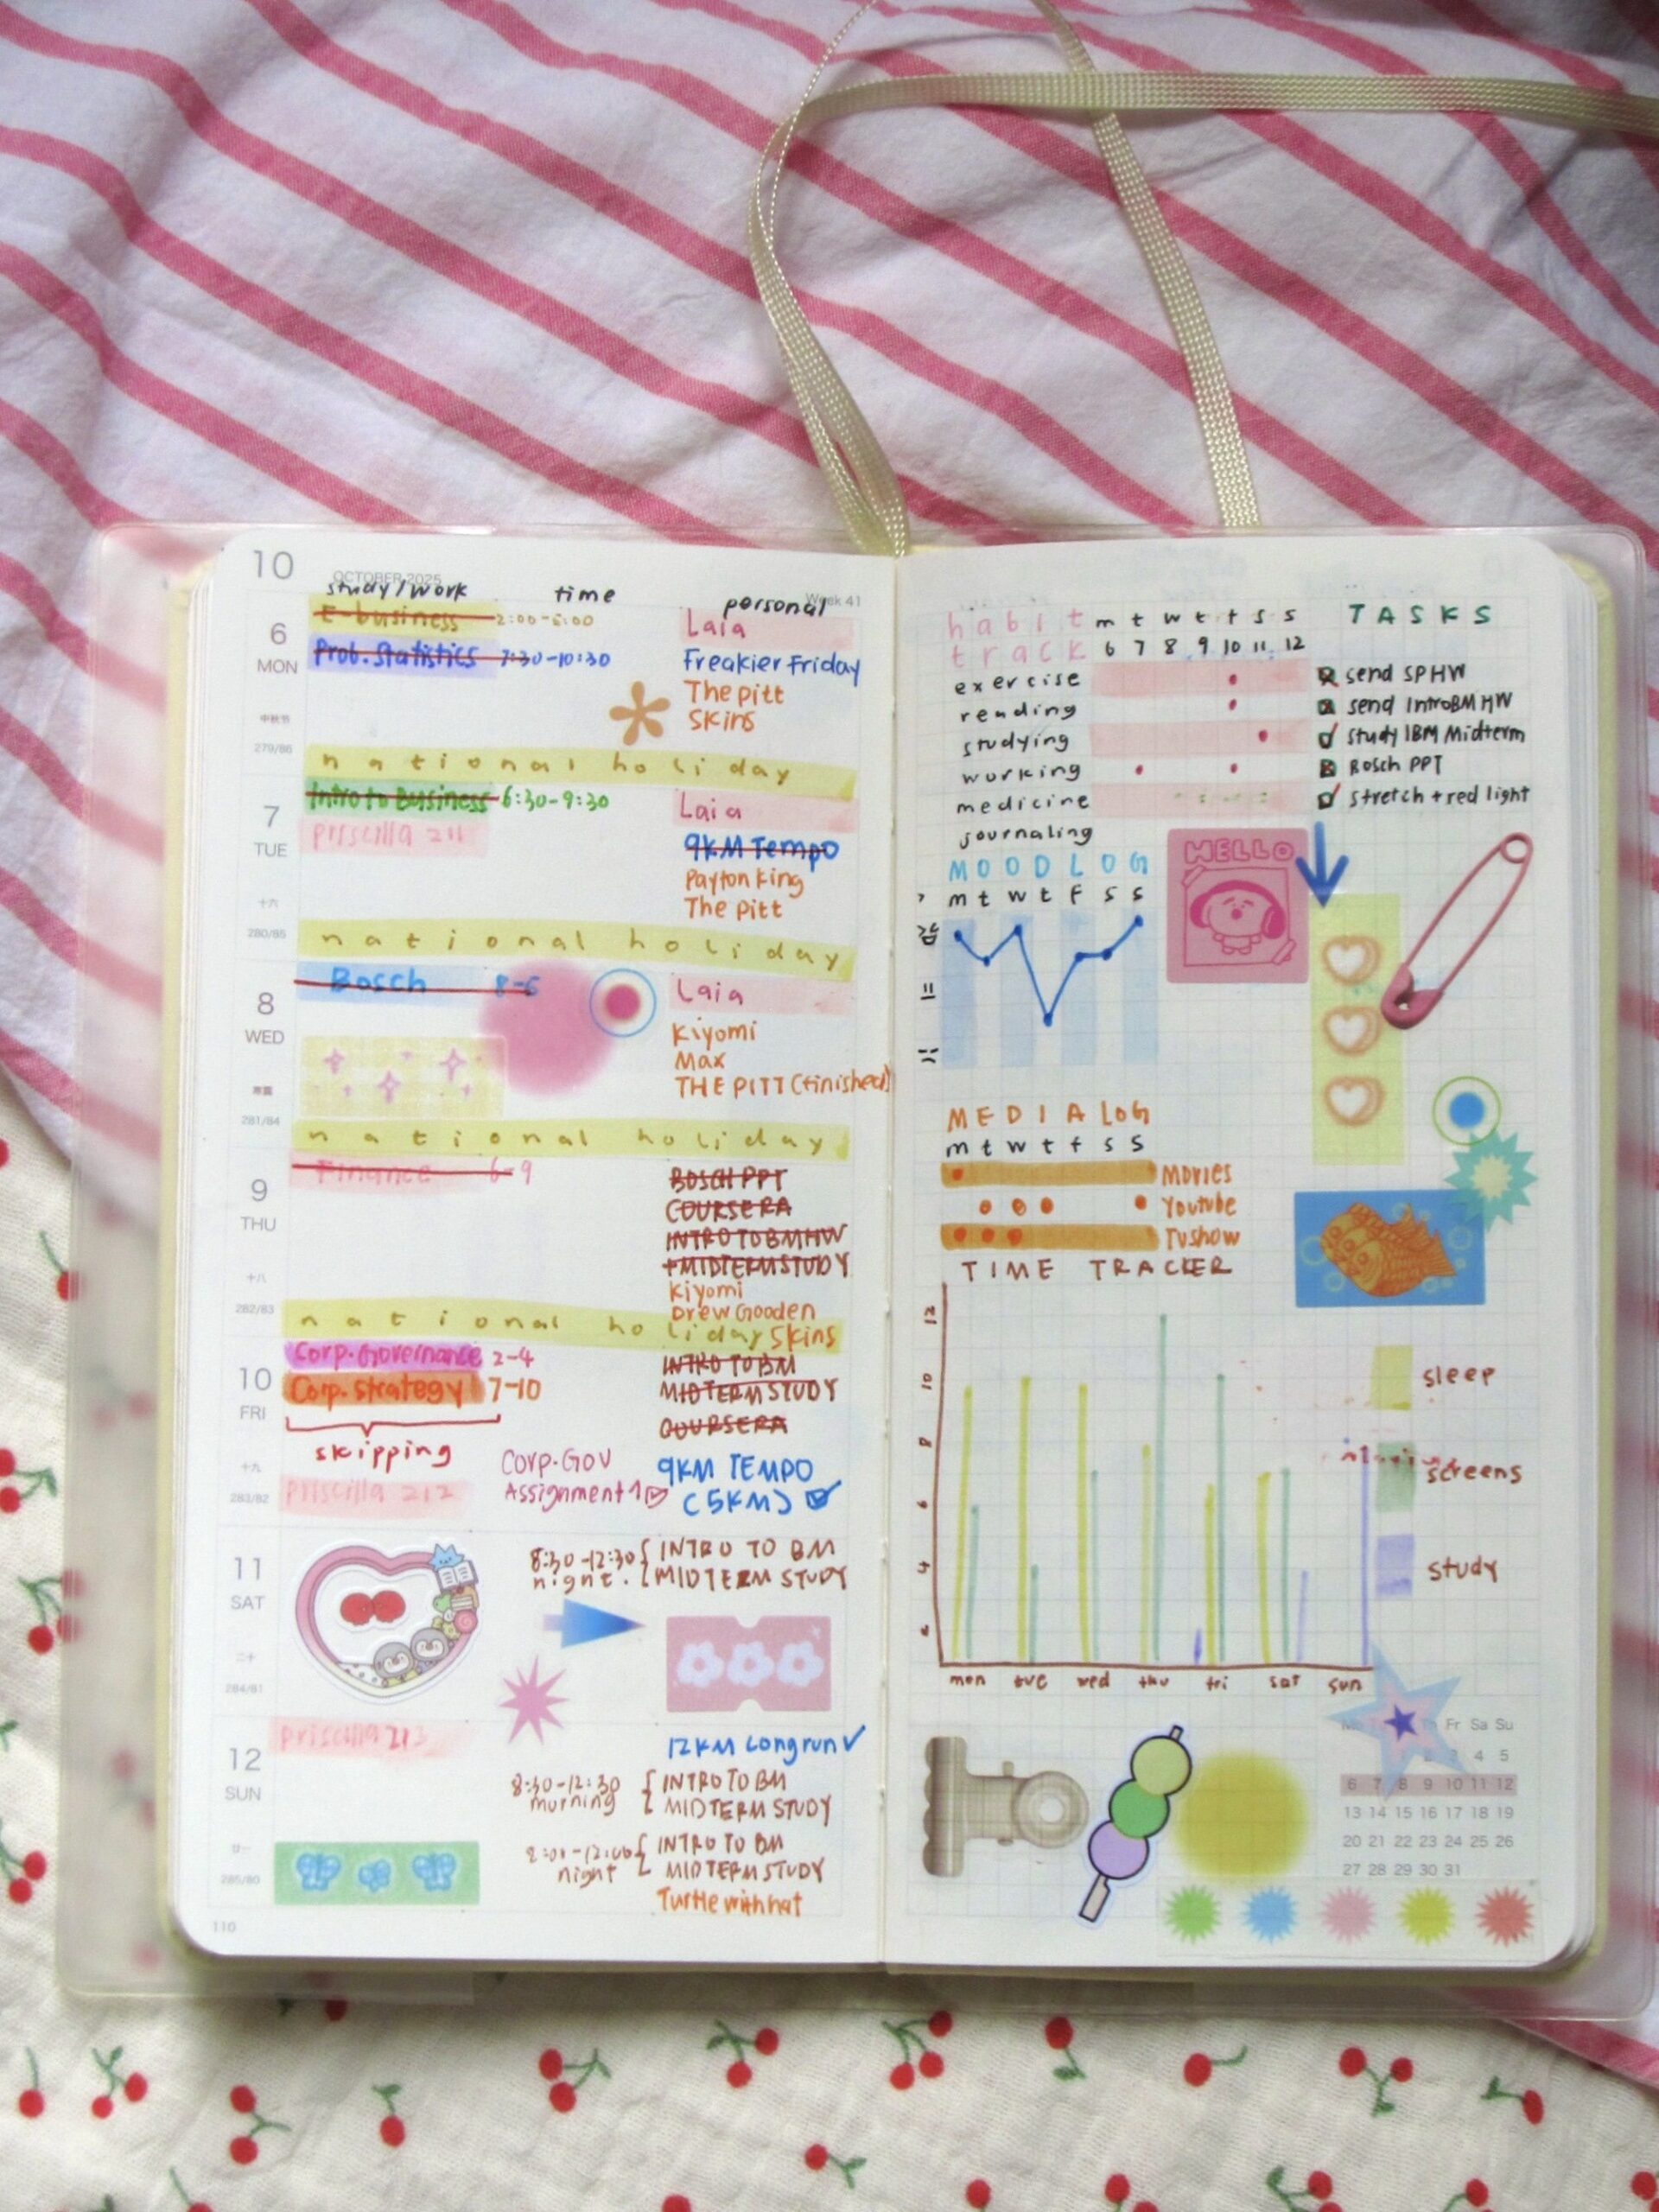 10
OCTOBER 2025
Week 41
study/work time personal
6
MON
中秋节
279/86
E-business 2:00-5:00
Prob. Statistics 7:30-10:30
Laia
Freakier Friday
The pitt
Skins
national holiday
7
TUE
十六
280/85
Intro to Business 6:30-9:30
Priscilla 211
Laia
9KM Tempo
Payton King
The Pitt
national holiday
8
WED
281/84
Bosch 8-5
Laia
Kiyomi
Max
THE PITT (finished)
national holiday
9
THU
十八
282/83
Finance 6-9
BOSCH PPT
COURSERA
INTRO TO BM HW
+ MIDTERM STUDY
Kiyomi
Drew Gooden
national holiday Skins
10
FRI
十九
283/82
Corp. Governance 2-4
Corp. Strategy 7-10
skipping
Priscilla 212
Corp. Gov
Assignment 1
INTRO TO BM
MIDTERM STUDY
COURSERA
9KM TEMPO
(5KM)
11
SAT
二十
284/81
8:30-12:30 { INTRO TO BM
night. { MIDTERM STUDY
12
SUN
廿一
285/80
Priscilla 213
12KM Long run ✓
8:30-12:30 { INTRO TO BM
morning { MIDTERM STUDY
2:00-12:00 { INTRO TO BM
night { MIDTERM STUDY
Turtle with hat
110
habit m t w t f s s
track 6 7 8 9 10 11 12
exercise
reading
studying
working
medicine
journaling
TASKS
send SPHW
send IntroBM HW
Study IBM Midterm
Bosch PPT
stretch + red light
HELLO
MOOD LOG
m t w t f s s
MEDIA LOG
m t w t f s s
Movies
Youtube
TV show
TIME TRACKER
12
10
8
6
4
2
mon tue wed thu fri sat sun
sleep
screens
study
Fr Sa Su
3 4 5
6 7 8 9 10 11 12
13 14 15 16 17 18 19
20 21 22 23 24 25 26
27 28 29 30 31